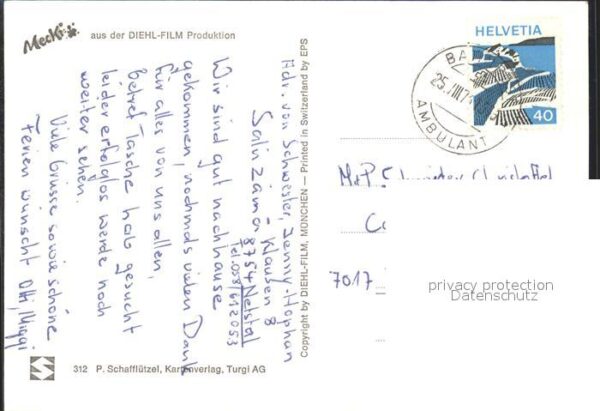 Mecki
aus der DIEHL-FILM Produktion
Adr. von Schwester, Jenny Hophan
Salizämä Wauben 8
8754 Netstal
Tel. 058/612053
Wir sind gut nachhause
gekommen, nochmals vielen Dank
für alles von uns allen,
betref Tasche hab gesucht
leider erfolglos werde noch
weiter sehen.
Viele Grüsse sowie schöne
Ferien wünscht
312 P. Schafflützel, Kartenverlag, Turgi AG
Copyright by DIEHL-FILM, MÜNCHEN — Printed in Switzerland by EPS
HELVETIA
40
AMBULANT
M+P.
7017
privacy protection
Datenschutz